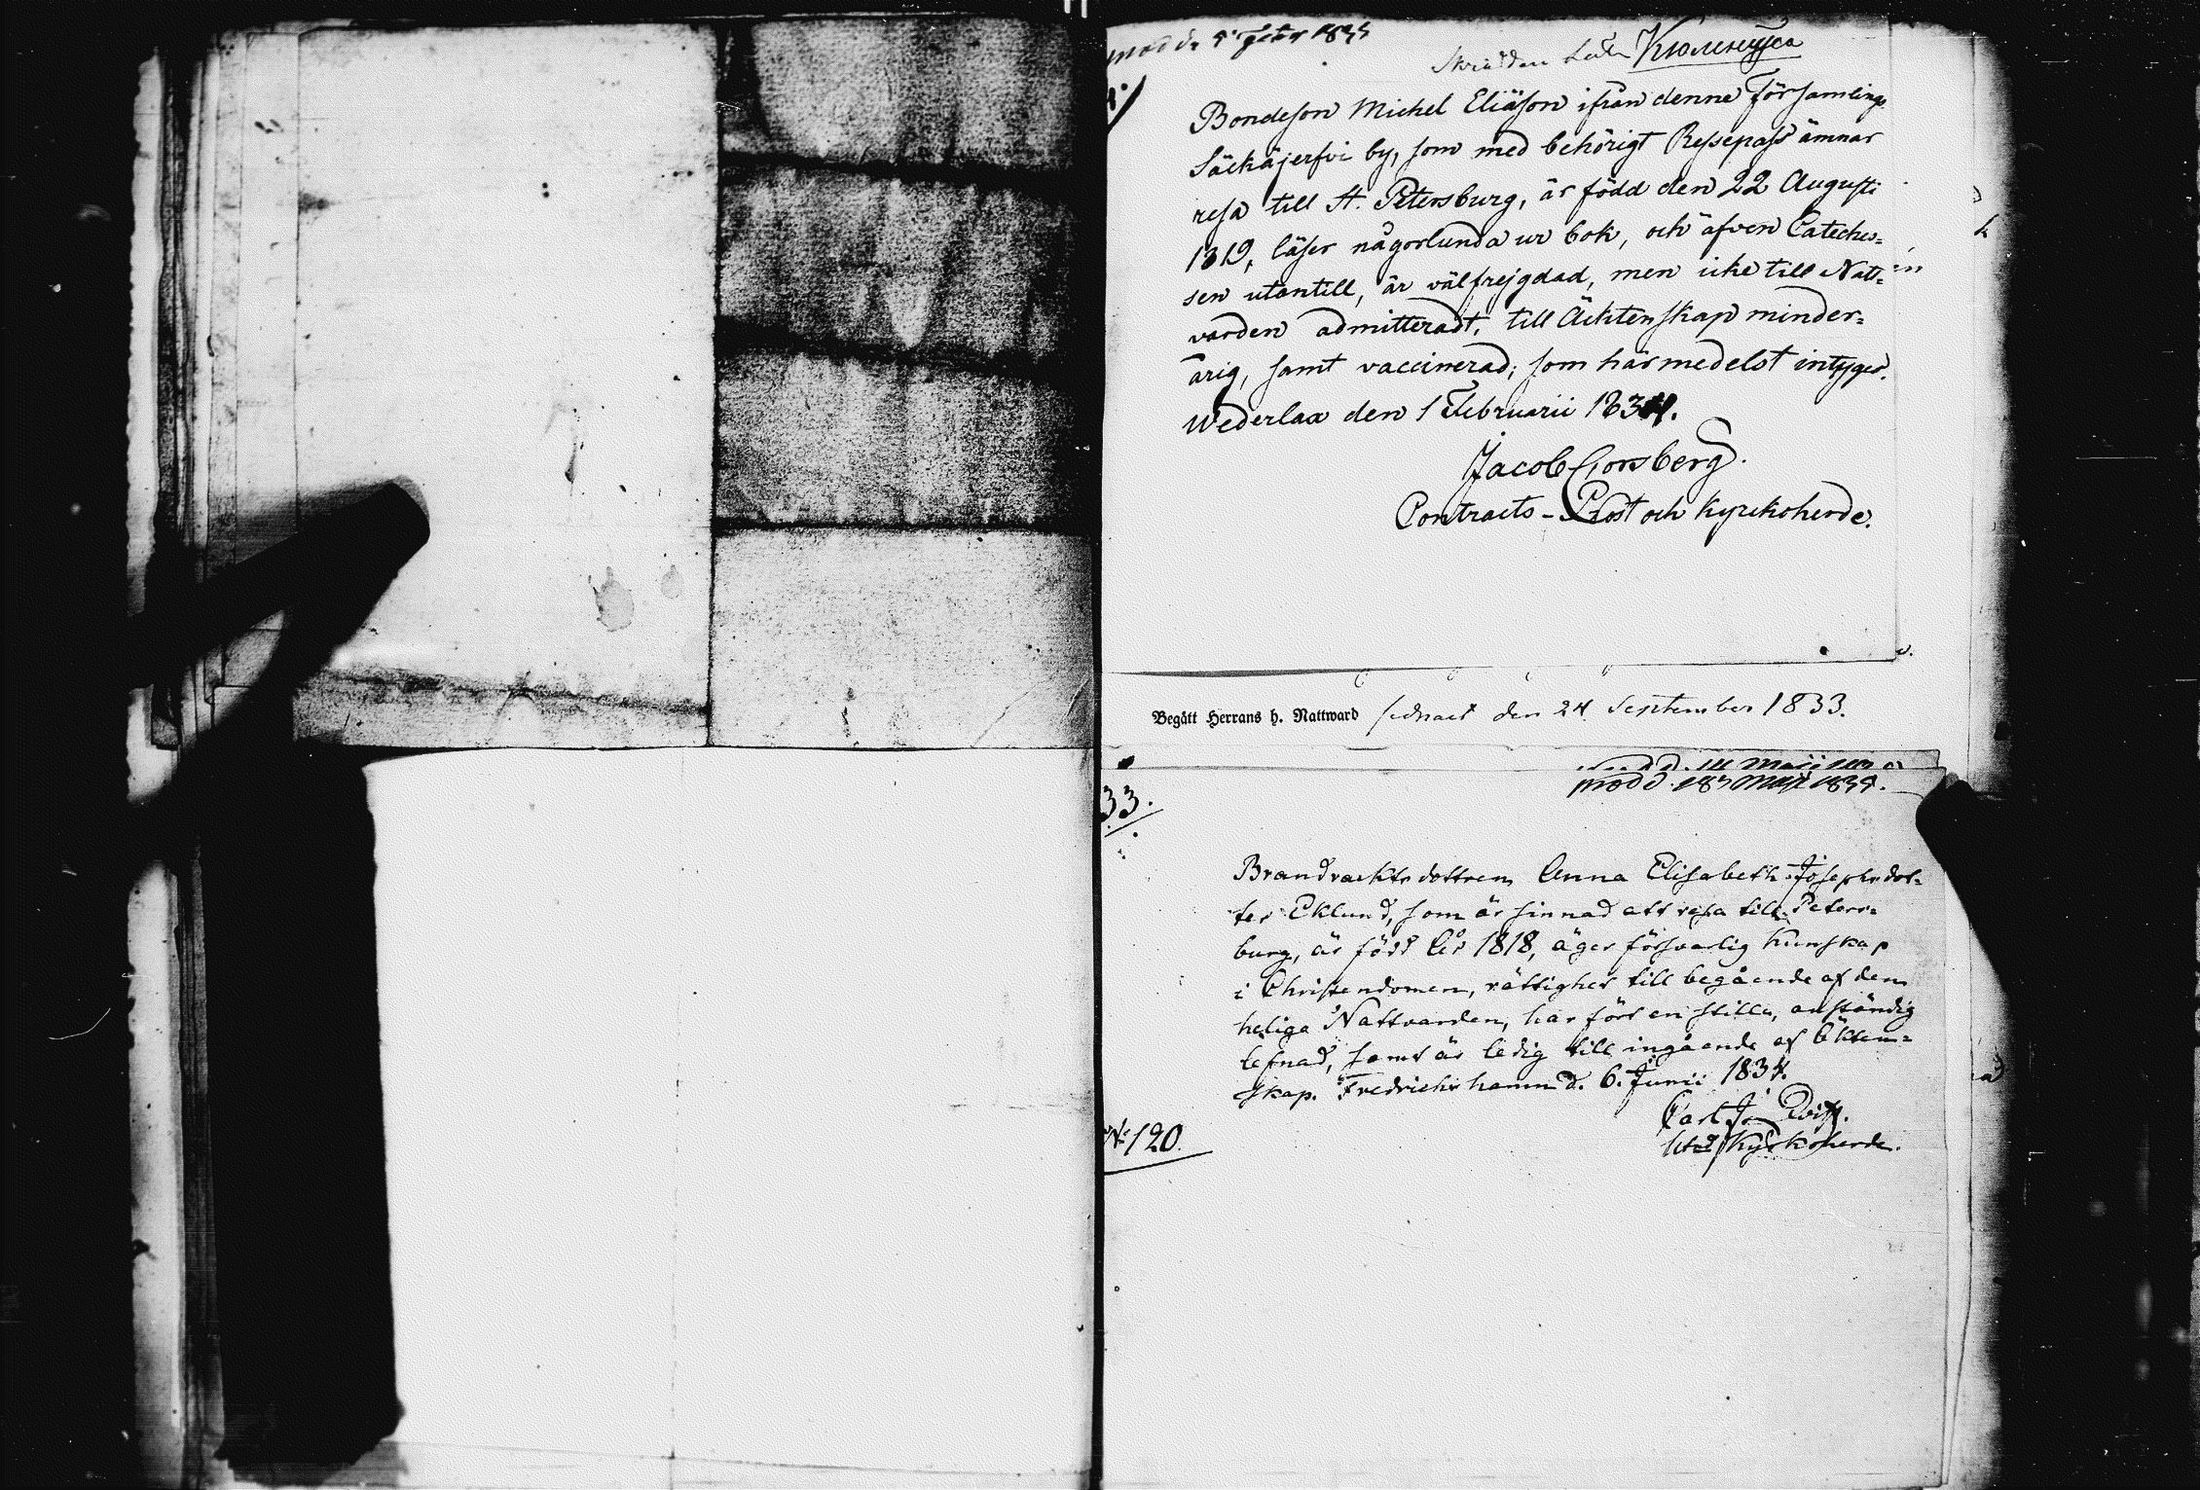 d. 5 Febr 1835
Skrädden
Bondeson Michel Eliäson ifrån denne Församlings
Säckäjerfvi by, som med behörigt Ressepass ämnar
resa till St. Petersburg, är född den 22 Augusti
1819, läser någorlunda ur bok, och äfven Cateche-
sen utantill, är välfrejgdad, men icke till Natt-
varden admitterad, till Ächtenskap minder-
årig, samt vaccinerad; som härmedelst intygas.
Wederlax den 1 Februarii 1834.
Jacob Forsberg.
Contracts-Prost och Kyrckoherde.
Begått Herrans h. Nattward sednast den 24 September 1833.
33.
Brandvackts dottren Anna Elisabeth Josephsdot-
ter Eklund, som är sinnad att resa till Peters-
burg, är född År 1818, äger försvarlig kunskap
i Christendomen, rättighet till begående af den
heliga Nattvarden, har fört en stilla, anständig
lefnad, samt är ledig till ingående af Äkten-
skap. Fredrichshamn d. 6. Junii 1834.
Carl
Kyrkoherde.
N: 120.